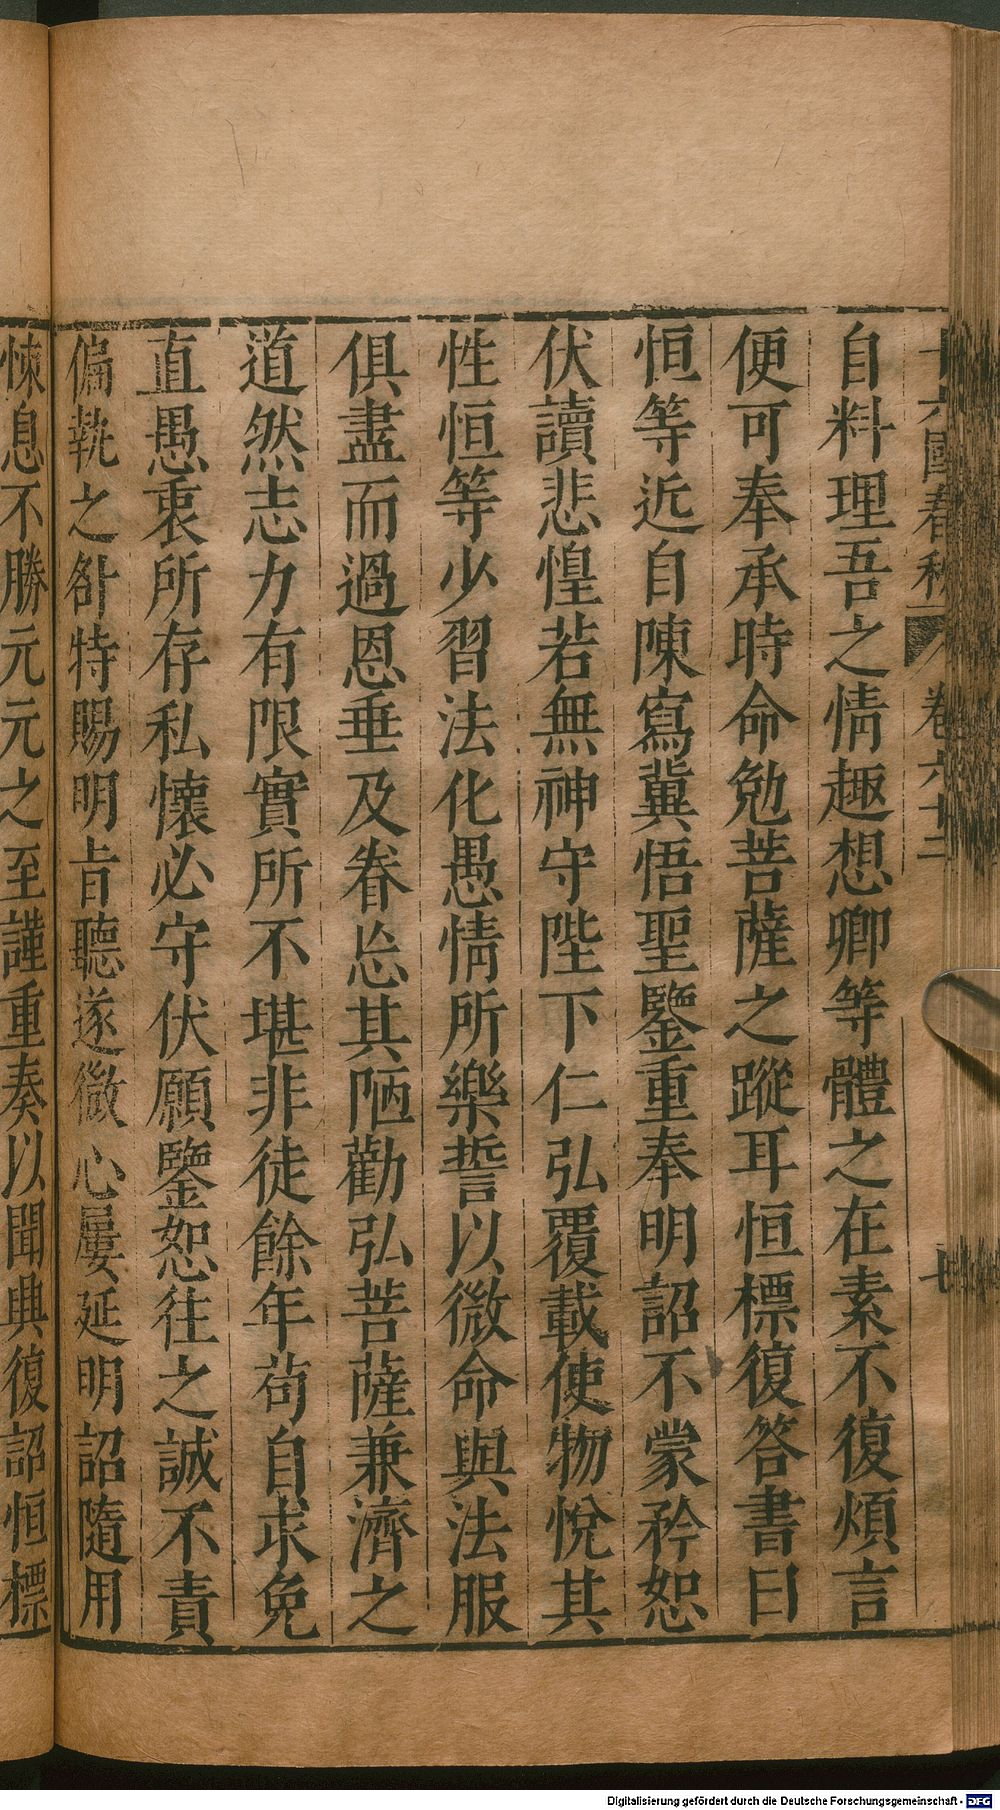 十六國春秋 卷六十二 七
自料理吾之情趣想卿等體之在素不復煩言
便可奉承時命勉菩薩之蹤耳恒標復答書曰
恒等近自陳寫冀悟聖鑒重奉明詔不蒙矜恕
伏讀悲惶若無神守陛下仁弘覆載使物悅其
性恒等少習法化愚情所樂誓以微命與法服
俱盡而過恩垂及眷忘其陋勸弘菩薩兼濟之
道然志力有限實所不堪非徒餘年苟自求免
直愚衷所存私懷必守伏願鑒恕往之誠不責
偏執之咎特賜明旨聽遂微心屢延明詔隨用
悚息不勝元元之至謹重奏以聞興復詔恒標
Digitalisierung gefördert durch die Deutsche Forschungsgemeinschaft - DFG